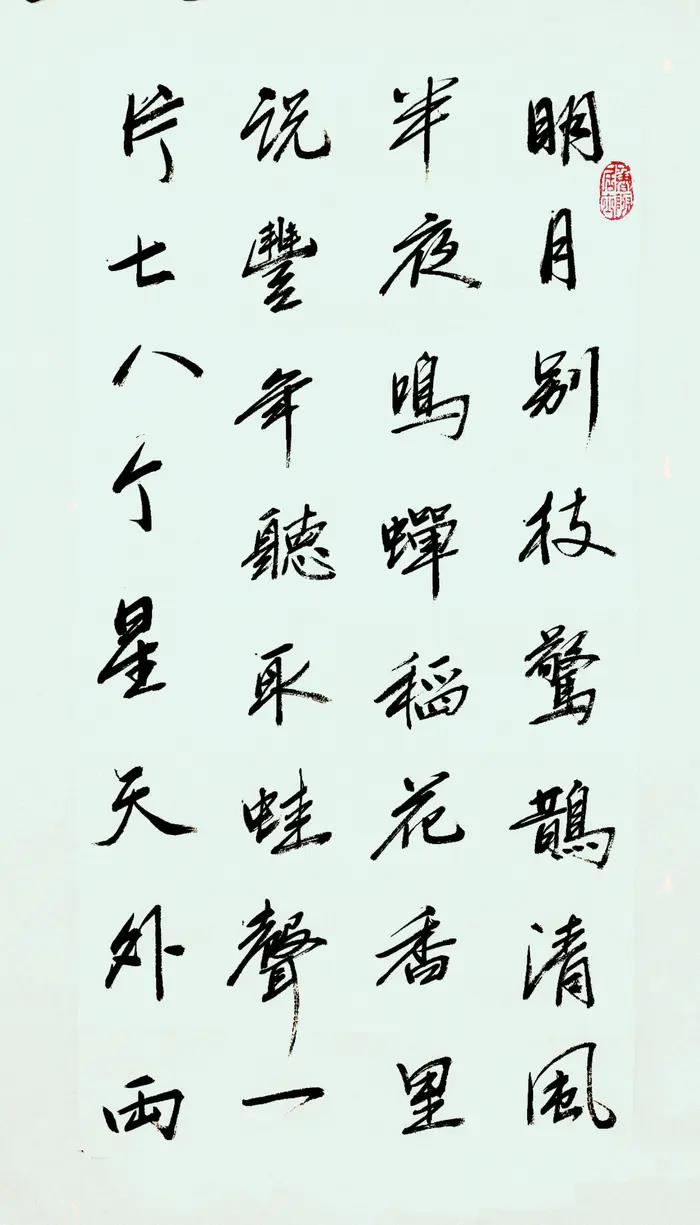 明月别枝驚鵲清風
半夜鳴蟬稻花香里
说豐年聽取蛙聲一
片七八个星天外兩